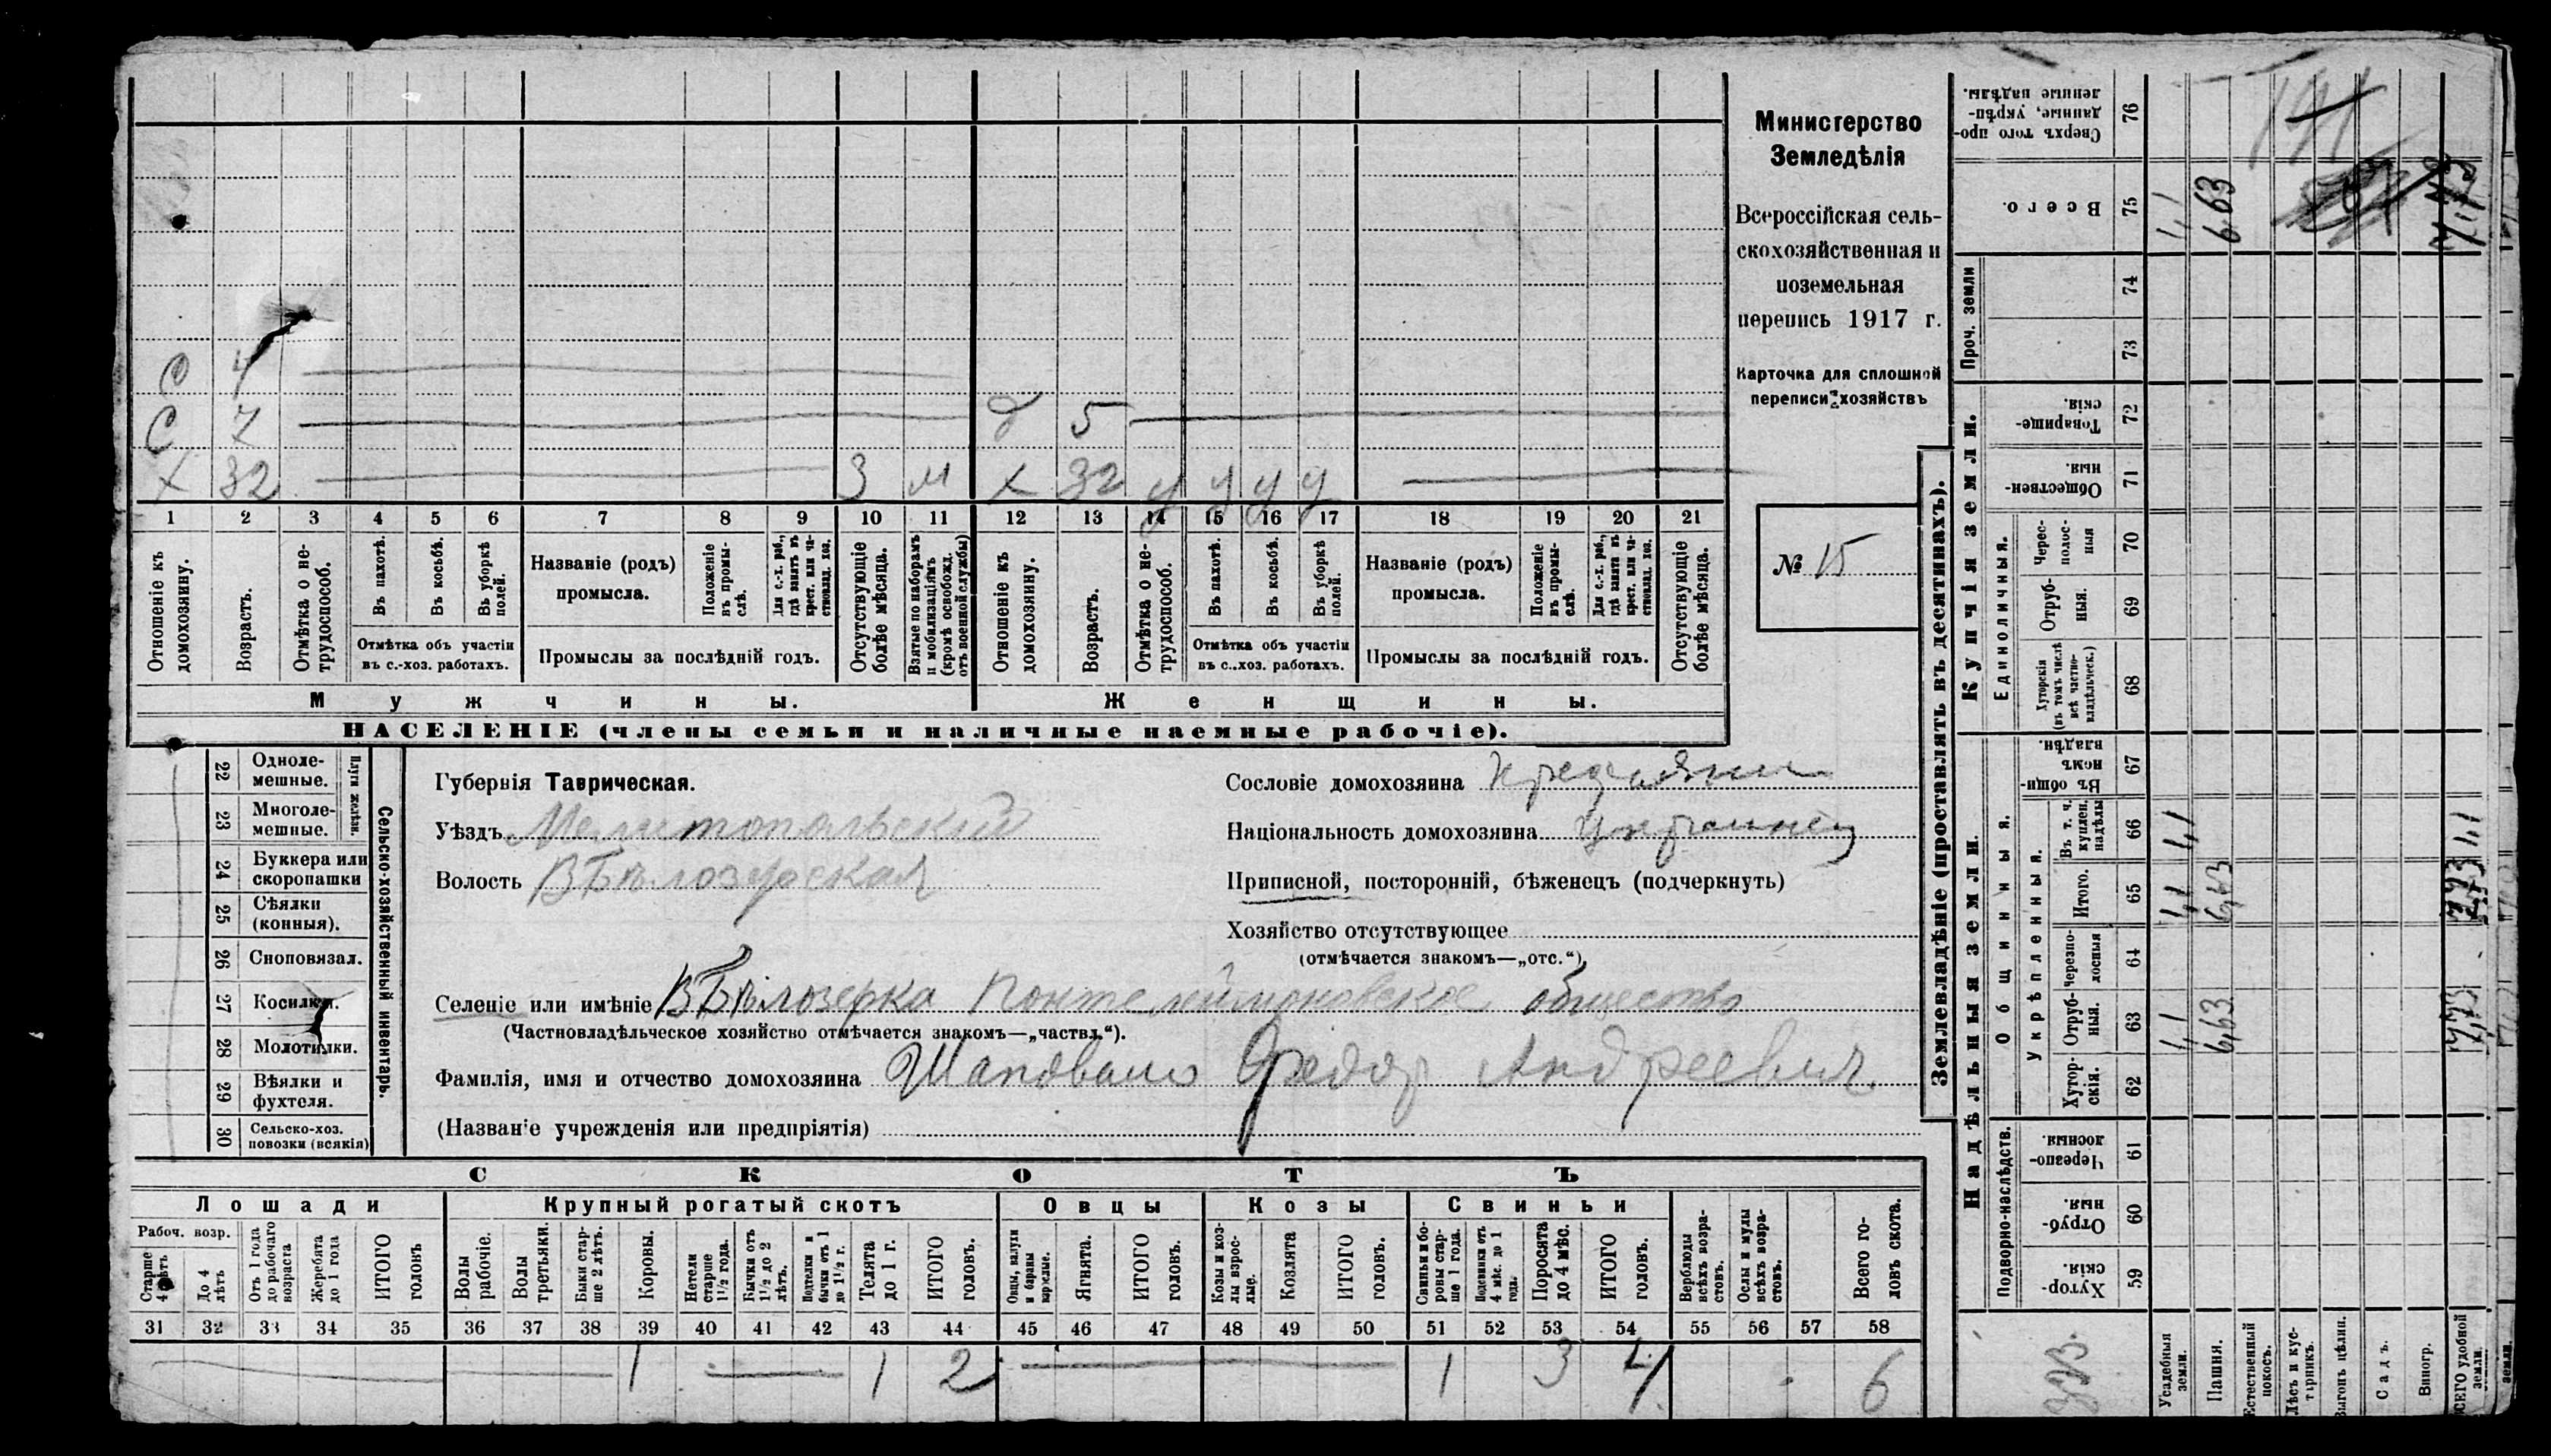 С 4
С 7 д 5
Х 32 З М Х 32 У У У У
1 2 3 4 5 6 7 8 9 10 11 12 13 14 15 16 17 18 19 20 21
Отношеніе къ домохозяину.
Возрастъ.
Отмѣтка о не-трудоспособ.
Въ пахотѣ.
Въ косьбѣ.
Въ уборкѣ полей.
Отмѣтка объ участіи
въ с.-хоз. работахъ.
Названіе (родъ)
промысла.
Положеніе въ промы-слѣ.
Для с.-х. раб., гдѣ занятъ въ крест. или ча-стновлад. хоз.
Промыслы за послѣдній годъ.
Отсутствующіе болѣе мѣсяца.
Взятые по наборамъ и мобилизаціямъ (кромѣ освобожд. отъ военной службы)
Отношеніе къ домохозяину.
Возрастъ.
Отмѣтка о не-трудоспособ.
Въ пахотѣ.
Въ косьбѣ.
Въ уборкѣ полей.
Отмѣтка объ участіи
въ с.-хоз. работахъ.
Названіе (родъ)
промысла.
Положеніе въ промы-слѣ.
Для с.-х. раб., гдѣ занята въ крест. или ча-стновлад. хоз.
Промыслы за послѣдній годъ.
Отсутствующіе болѣе мѣсяца.
Мужчины.
Женщины.
НАСЕЛЕНІЕ (члены семьи и наличные наемные рабочіе).
Министерство
Земледѣлія
Всероссійская сель-
скохозяйственная и
поземельная
перепись 1917 г.
Карточка для сплошной
переписи хозяйствъ
№ 15
22 Однолемешные.
23 Многолемешные.
Плуги желѣзн.
24 Буккера или скоропашки
25 Сѣялки (конныя).
26 Сноповязал.
27 Косилки.
28 Молотилки.
29 Вѣялки и фухтеля.
30 Сельско-хоз. повозки (всякія)
Сельско-хозяйственный инвентарь.
Губернія Таврическая.
Уѣздъ Мелитопольскій
Волость ВБѣлозерская
Сословіе домохозяина крестьянин
Національность домохозяина украинец
Приписной, посторонній, бѣженецъ (подчеркнуть)
Хозяйство отсутствующее
(отмѣчается знакомъ—„отс.“)
Селеніе или имѣніе ВБѣлозерка Понтелеймоновское общество
(Частновладѣльческое хозяйство отмѣчается знакомъ—„частвл.“).
Фамилія, имя и отчество домохозяина Шаповал Федор Андреевич
(Названіе учрежденія или предпріятія)
СКОТЪ
Лошади
Крупный рогатый скотъ
Овцы
Козы
Свиньи
Рабоч. возр.
Старше 4 лѣтъ
До 4 лѣтъ
Отъ 1 года до рабочаго возраста
Жеребята до 1 года
ИТОГО головъ
Волы рабочіе.
Волы третьяки.
Быки стар-ше 2 лѣтъ.
Коровы.
Нетели старше 1½ года.
Бычки отъ 1½ до 2 лѣтъ.
Подтелки и бычки отъ 1 до 1½ г.
Телята до 1 г.
ИТОГО головъ.
Овцы, валухи и бараны взрослые.
Ягнята.
ИТОГО головъ.
Козы и коз-лы взрос-лые.
Козлята
ИТОГО головъ.
Свиньи и бо-ровы стар-ше 1 года.
Подсвинки отъ 4 мѣс. до 1 года.
Поросята до 4 мѣс.
ИТОГО головъ.
Верблюды всѣхъ возра-стовъ.
Ослы и мулы всѣхъ возра-стовъ.
Всего го-ловъ скота.
31 32 33 34 35 36 37 38 39 40 41 42 43 44 45 46 47 48 49 50 51 52 53 54 55 56 57 58
1 1 2 1 3 4 6
Землевладѣніе (проставлять въ десятинахъ).
Надѣльныя земли.
Купчія земли.
Проч. земли
Подворно-наслѣдств.
Общинныя.
Укрѣпленныя.
Единоличныя.
Сверхъ того проданные, укрѣпленные надѣлы. 76
Всего. 75 1,1 6,63
74
73
Товарищескія. 72
Общественныя. 71
Черес-полос-ныя 70
Отруб-ныя. 69
Хуторскія (въ томъ числѣ всѣ частно-владѣльческ.) 68
Въ общинномъ владѣн. 67
Въ т. ч. куплен. надѣлы 66 1,1
Итого. 65 1,1 6,63
Черезпо-лосныя 64
Отруб-ныя. 63 1,1 6,63 7,73
Хутор-скія. 62
Черезпо-лосныя 61
Отруб-ныя. 60
Хутор-скія. 59
Усадебныя земли.
Пашня.
Естественный покосъ.
Лѣсъ и кустарникъ.
Выгонъ цѣлин.
Садъ.
Виногр.
ВСЕГО удобной земли.
земли.